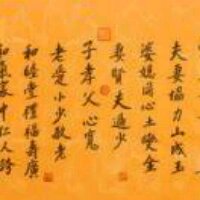 夫妻協力山成玉
婆媳同心土變金
妻賢夫過少
子孝父心寬
老愛小少敬老
和睦堂禮福壽廣
和家中仁人